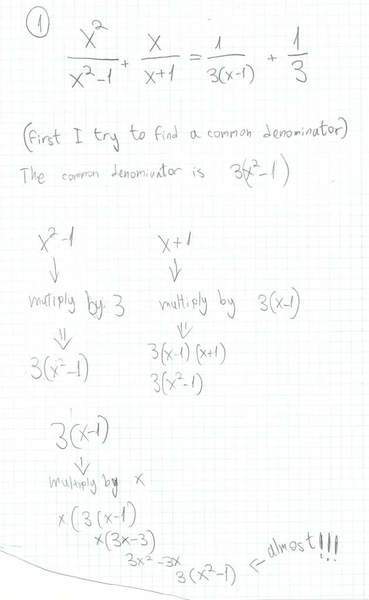 1
x²/(x²-1) + x/(x+1) = 1/(3(x-1)) + 1/3
(First I try to find a common denominator)
The common denominator is 3(x²-1)
x²-1
↓
multiply by 3
⇓
3(x²-1)
x+1
↓
multiply by 3(x-1)
⇓
3(x-1)(x+1)
3(x²-1)
3(x-1)
↓
multiply by x
x(3(x-1)
x(3x-3)
3x²-3x
3(x²-1) ← almost!!!